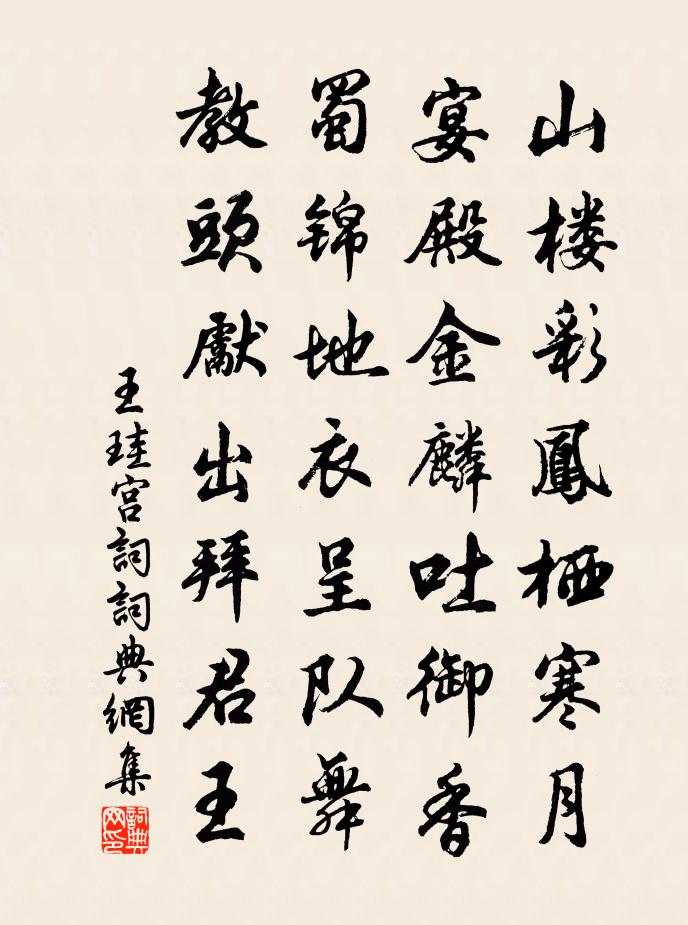 山楼彩鳳栖寒月
宴殿金麟吐御香
蜀锦地衣呈队舞
教頭獻出拜君王
王珪宫詞詞典網集
詞典
网印